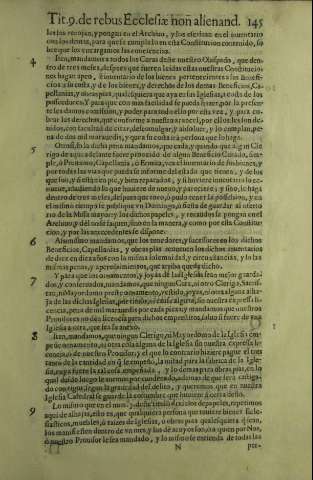 Tit. 9. de rebus Ecclesiæ non alienand. 145
los los recojan, y pongan en el Archiuo, y los escriuan en el inuentario
con los demas, para que se cumpla lo en esta Constitucion contenido, so
bre que les encargamos las conciencias.
4 Iten, mandamos a todos los Curas deste nuestro Obispado, que den-
tro de tres meses, despues que fueren leidas estas nuestras Constitucio
nes hagan apeo, è inuentario de los bienes pertenecientes a los Benefi-
cios a su cura, y de los bienes, y derechos de los demas Beneficios, Ca-
pellanias, y obras pias,
posseedores. Y para que con mas facilidad se pueda hazer, por la presen-
te les damos comission, y poder para todo ello por esta vez, y para en-
brar los derechos, que conforme a nuestro aranzel, por ello les son de-
uidos, con facultad de citar, descomulgar, y absoluer, y lo cumplan, pe-
na de dos mil marauedis, y que a su costa irà persona que lo haga.
5 Otrosi, so la dicha pena mandamos, que cada, y quando que algun Cle
rigo de aqui adelante fuere proueido de algun Beneficio Curado, sim-
ple, ò Prestamo, Capellania, ò Ermita,
por todas las vias que pueda se informe del estado que tienen, y de los
que son, y si estàn en pie, y bien reparados, y si huuiere inuentario lo con-
tinue, añadiendo lo que huuiere de nueuo, y pareciere; y sino, le haga
dentro de tres meses, despues que tomò, ò pudo tener la possession, y en
el mismo tiempo se publique en Domingo, ò fiesta de guardar al oferto
rio de la Missa mayor: y los dichos papeles, y recaudos se pongan en el
Archiuo, y del no se saquen, sino en la manera, y como por esta Constitu
cion, y por las antecedentes se dispone.
6 Assimismo mandamos, que los tenedores, y sucessores en los dichos
Beneficios, Capellanias, y obras pias renueuen los dichos inuentarios
de diez en diez años con la misma solemnidad, y circunstancias, y so las
mismas penas, y apercebimientos, que arriba queda dicho.
7 Y para que los ornamentos, y joyas de las Iglesias sean mejor guarda-
dos, y conseruados, mandamos, que ningun Cura, ni otro Clerigo, Sacris-
tan, ni Mayordomo preste ornamento, vestido, joyas, ni otra alguna alha-
ja de las dichas Iglesias, por titulo, ni causa alguna, sin nuestra expressa li-
cencia, pena de mil marauedis por cada pieza: y mandamos que nuestros
Prouisores no den licencia para dichos emprestitos, saluo si fuere de vna
Iglesia a otra, que sea su anexo.
8 Iten, mandamos, que ningun Clerigo, ni Mayordomo de la Iglesia em-
preste ornamento, ni otra cosa alguna de la Iglesia sin nuestra expressa li-
cencia, ò de nuestro Prouisor; y el que lo contrario hiziere pague el tres
tanto de la cantidad en q̃ le empeña, la mitad para la fabrica de la Igle-
sia, cuya fuere la tal cosa empeñada, y lo demas para obras pias, en lo
qual desde luego le auemos por condenado, ademas de que serà castiga-
do con rigor segun la grauedad del delito, y queremos que en nuestra
Iglesia Catedral se guarde la costumbre que huuiere acerca desto.
9
aqui de alhajas, esto es, que qualquiera persona que tuuiere bienes Ecle-
siasticos, muebles, ò raizes de Iglesias, o obras pias qualesquiera q̃ sean,
los manifiesten dentro de vn mes,
ò nuestro Prouisor le sea mandado, y lo mismo se entienda de todas las
N per-